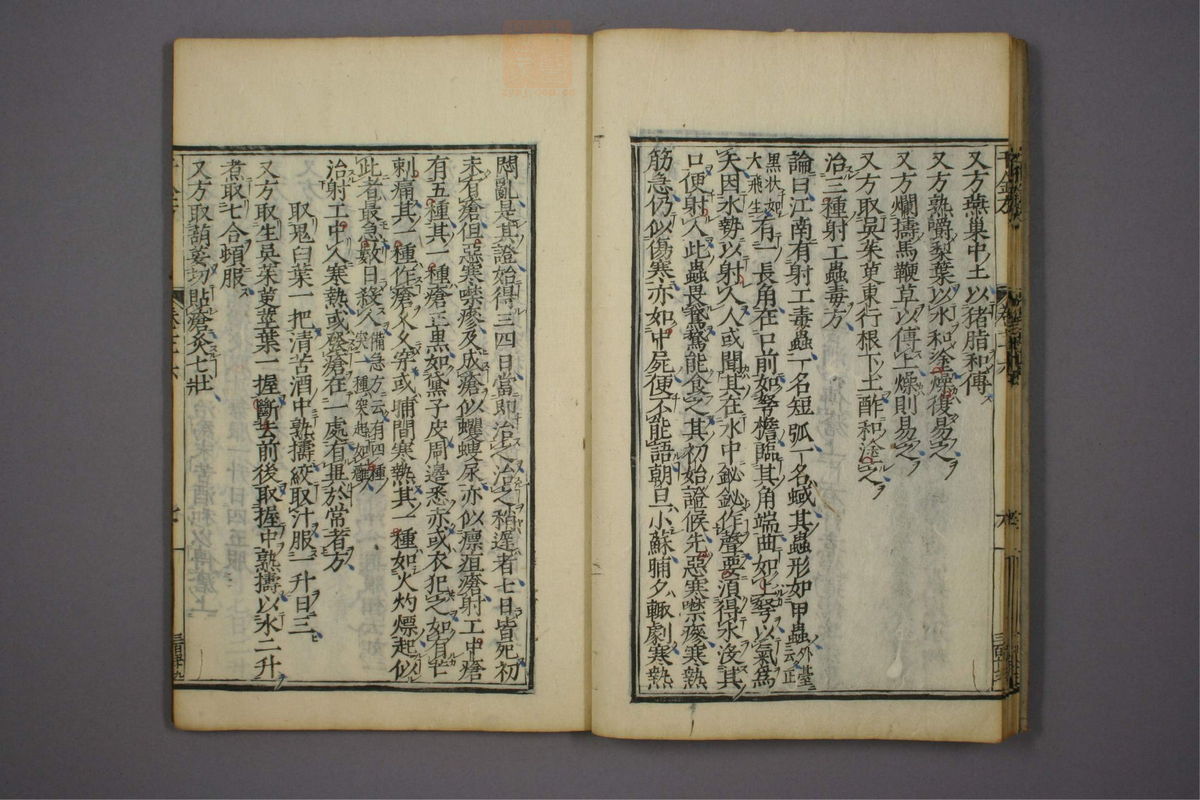 又方燕巢中土以猪脂和傅
又方熟嚼梨葉以水和塗燥復易之
又方爛擣馬鞭草以傅上燥則易之
又方取吳茱萸東行根下土酢和塗之
治三種射工蟲毒方
論曰江南有射工毒蟲一名短弧一名蜮其蟲形如甲蟲外臺云正
黑状如大飛生有一長角在口前如弩檐臨其角端曲如上弩以氣為
矢因水勢以射人人或聞其在水中鉍鉍作聲要須得水沒其
口便射人此蟲畏鵞鵞能食之其初始證候先惡寒噤瘮寒熱
筋急仍似傷寒亦如中屍便不能語朝旦小蘇晡夕輙劇寒熱
悶亂是其證始得三四日當即治之治之稍遲者七日皆死初
未有瘡但惡寒噤瘮及成瘡似蠼螋尿亦似瘭疽瘡射工中瘡
有五種其一種瘡正黒如黶子皮周邊悉赤或衣犯之如有芒
刺痛其一種作瘡久久穿或晡間寒熱其一種如火灼熛起似
此者最急數日殺人備急方云有四種其一種突起如癰
治射工中人寒熱或發瘡在一處有異於常者方
取鬼臼葉一把清苦酒中熟擣絞取汁服一升日三
又方取生吳茱萸莖葉一握斷去前後取握中熟擣以水二升
煮取七合頓服
又方取葫切貼瘡灸七壯